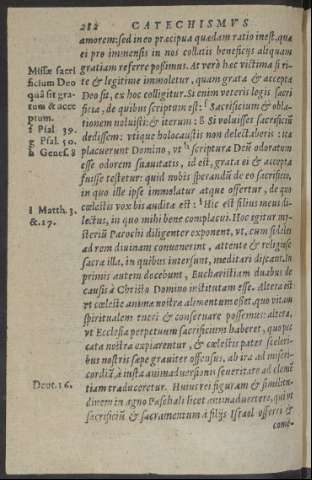 282 CATECHISMVS
amorem: sed in eo præcipua quædam ratio inest, quæ
ei pro immensis in nos collatis beneficijs aliquam
gratiam referre possimus. At verò hæc victima si ri-
te & legitimè immoletur, quam grata & accepta
Deo sit, ex hoc colligitur. Si enim veteris legis sacri
ficia, de quibus scriptum est: f Sacrificium & obla-
tionem noluisti: & iterum: g Si voluisses sacrificiũ
dedissem: vtique holocaustis non delectaberis: ita
placuerunt Domino, vt h scriptura Deũ odoratum
esse odorem suauitatis, id est, grata ei & accepta
fuisse testetur: quid nobis sperandũ de eo sacrificio,
in quo ille ipse immolatur atque offertur, de quo
cœlestis vox bis audita est: i Hic est filius meus di-
lectus, in quo mihi bene complacui. Hoc igitur my-
steriũ Parochi diligenter exponent, vt, cum fideles
ad rem diuinam conuenerint, attente & religiose
sacra illa, in quibus intersunt, meditari discant. In
primis autem docebunt, Eucharistiam duabus de
causis à Christo Domino institutam esse. Altera est
vt cœleste animæ nostræ alimentum esset, quo vitam
spiritualem tueri & conseruare possemus: altera,
vt Ecclesia perpetuum sacrificium haberet, quo pec
cata nostra expiarentur, & cœlestis pater sceleri-
bus nostris sæpe grauiter offensus, ab ira ad miseri-
cordiã, à iusta animaduersionis seueritate ad clemẽ
tiam traduceretur. Huius rei figuram & similitu-
dinem in agno Paschali licet animaduertere, qui vt
sacrificiũ & sacramentum à filijs Israel offerri &
com-
Missæ sacri
ficium Deo
quã sit gra-
tum & acce
ptum.
f Psal. 39.
g Psal. 50.
h Genes. 8
i Matth. 3.
& 17.
Deut. 16.